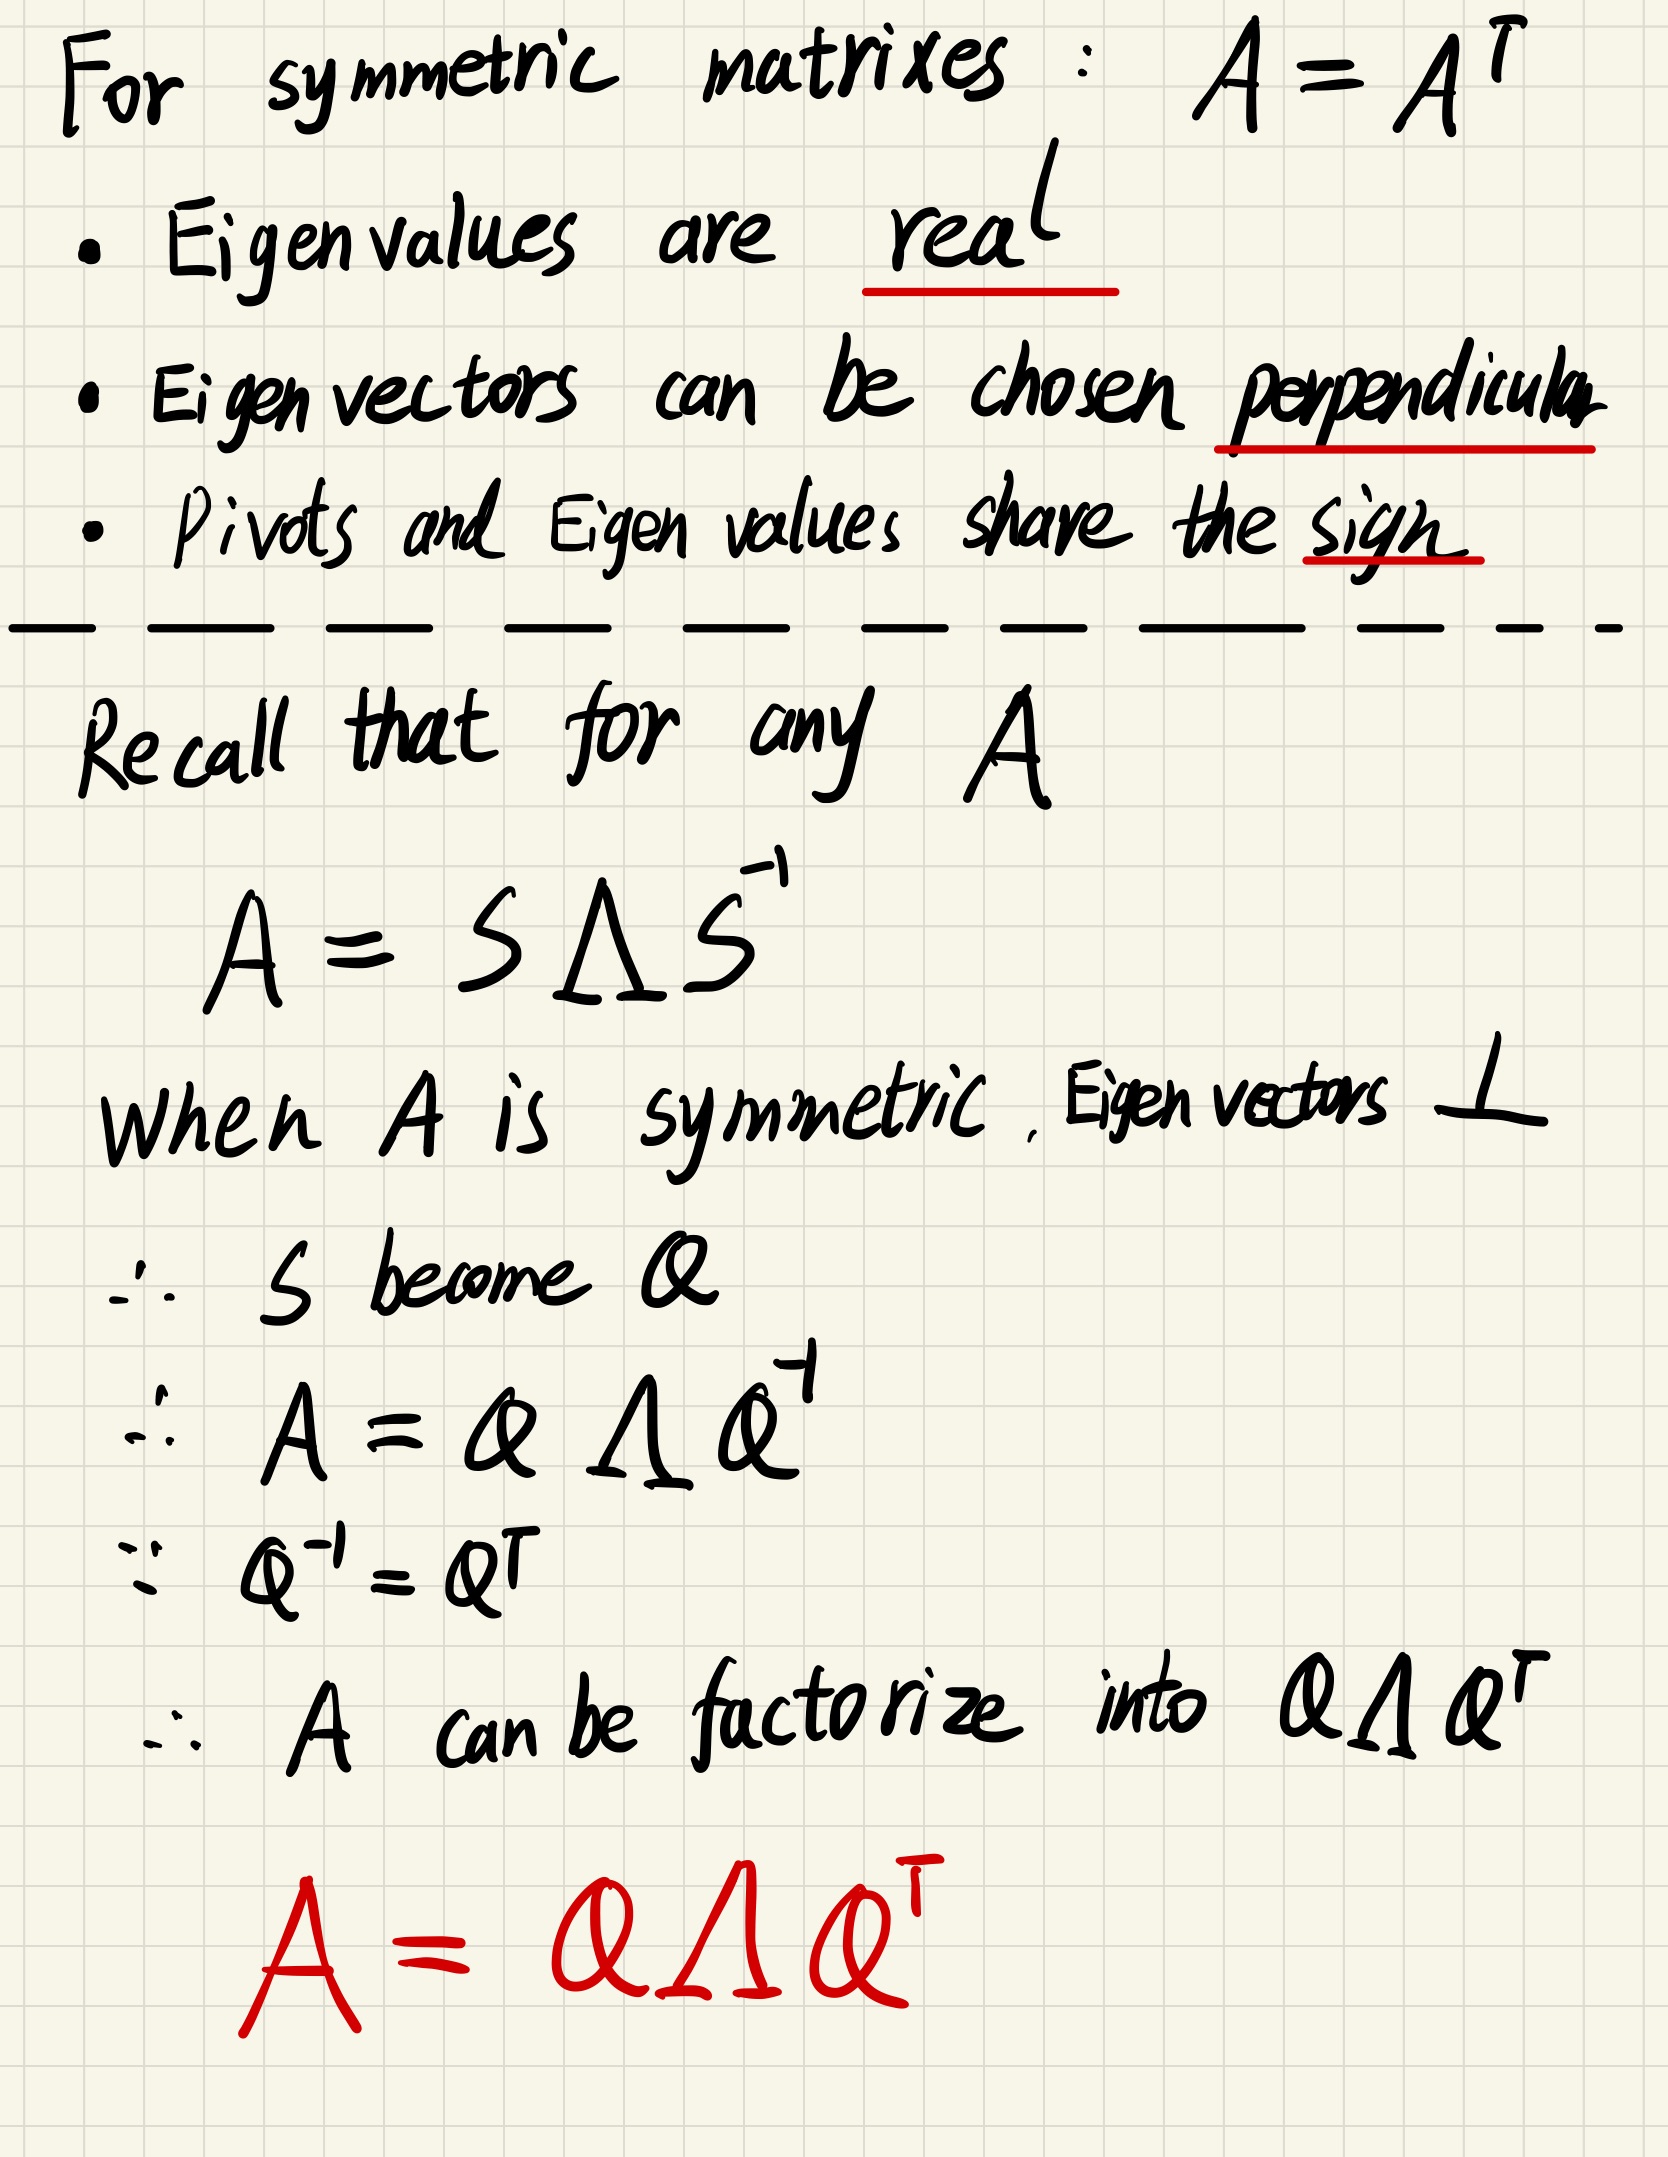 For symmetric matrixes : A = Aᵀ
• Eigenvalues are real
• Eigenvectors can be chosen perpendicular
• Pivots and Eigenvalues share the sign
Recall that for any A
A = SΛS⁻¹
When A is symmetric. Eigenvectors ⊥
∴ S become Q
∴ A = QΛQ⁻¹
∵ Q⁻¹ = Qᵀ
∴ A can be factorize into QΛQᵀ
A = QΛQᵀ